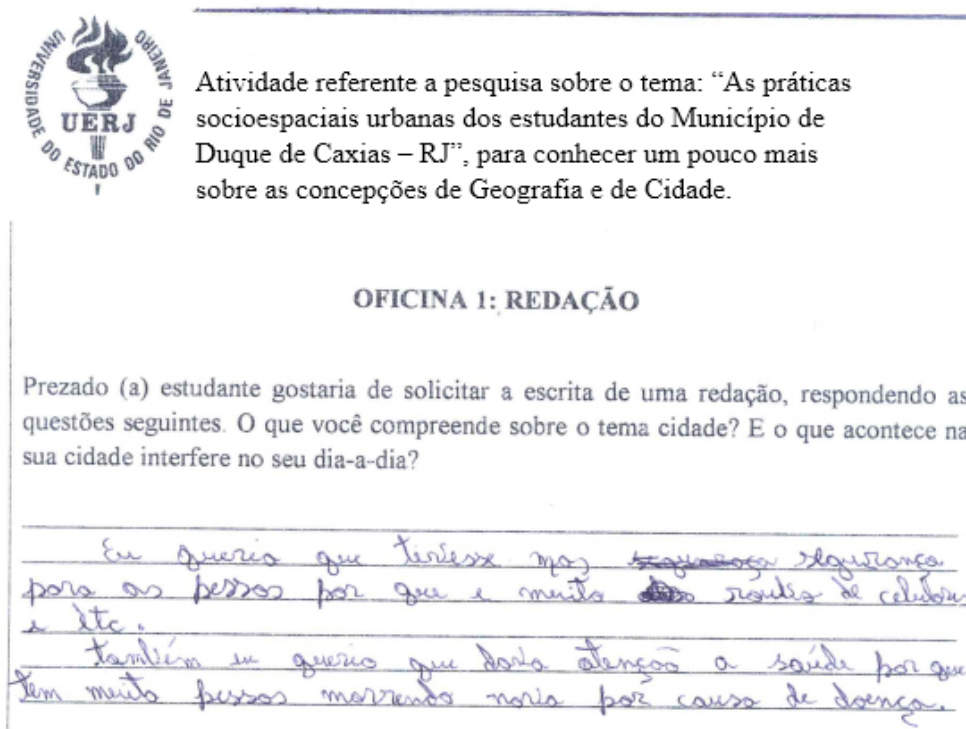 UNIVERSIDADE DO ESTADO DO RIO DE JANEIRO
UERJ
Atividade referente a pesquisa sobre o tema: “As práticas
socioespaciais urbanas dos estudantes do Município de
Duque de Caxias – RJ”, para conhecer um pouco mais
sobre as concepções de Geografia e de Cidade.
OFICINA 1: REDAÇÃO
Prezado (a) estudante gostaria de solicitar a escrita de uma redação, respondendo as
questões seguintes. O que você compreende sobre o tema cidade? E o que acontece na
sua cidade interfere no seu dia-a-dia?
Eu queria que tivesse mas segurança
para as pessoas por que e muito de celulares
e etc.
também eu queria que atençaõ a saúde por que
tem muita pessoas morrendo por causa de doença.